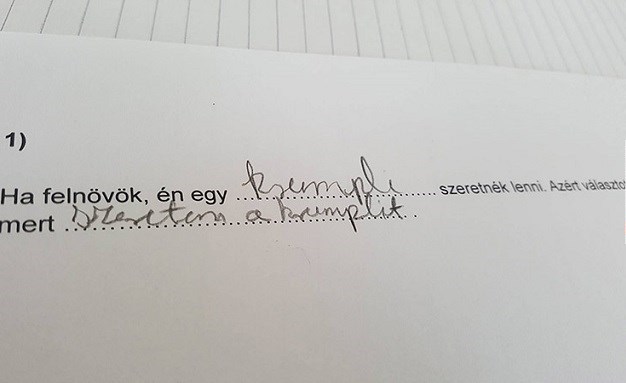 1)
Ha felnövök, én egy krumpli szeretnék lenni. Azért választo
mert szeretem a krumplit.